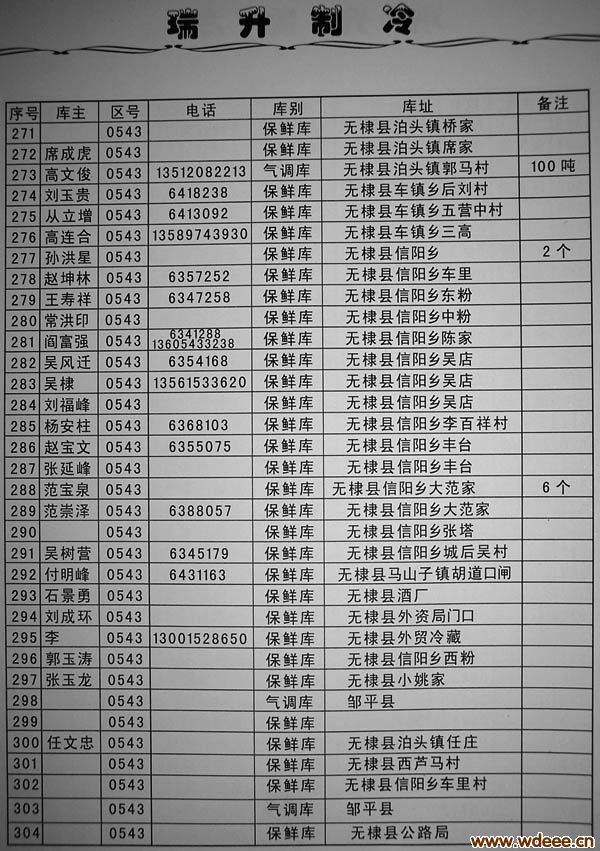 瑞升制冷
序号 库主 区号 电话 库别 库址 备注
271 0543 保鲜库 无棣县泊头镇桥家
272 席成虎 0543 保鲜库 无棣县泊头镇席家
273 高文俊 0543 13512082213 气调库 无棣县泊头镇郭马村 100吨
274 刘玉贵 0543 6418238 保鲜库 无棣县车镇乡后刘村
275 从立增 0543 6413092 保鲜库 无棣县车镇乡五营中村
276 高连合 0543 13589743930 保鲜库 无棣县车镇乡三高
277 孙洪星 0543 保鲜库 无棣县信阳乡 2个
278 赵坤林 0543 6357252 保鲜库 无棣县信阳乡车里
279 王寿祥 0543 6347258 保鲜库 无棣县信阳乡东粉
280 常洪印 0543 保鲜库 无棣县信阳乡中粉
281 阎富强 0543 6341288 13605433238 保鲜库 无棣县信阳乡陈家
282 吴风迁 0543 6354168 保鲜库 无棣县信阳乡吴店
283 吴棣 0543 13561533620 保鲜库 无棣县信阳乡吴店
284 刘福峰 0543 保鲜库 无棣县信阳乡吴店
285 杨安柱 0543 6368103 保鲜库 无棣县信阳乡李百祥村
286 赵宝文 0543 6355075 保鲜库 无棣县信阳乡丰台
287 张延峰 0543 保鲜库 无棣县信阳乡丰台
288 范宝泉 0543 保鲜库 无棣县信阳乡大范家 6个
289 范崇泽 0543 6388057 保鲜库 无棣县信阳乡大范家
290 0543 保鲜库 无棣县信阳乡张塔
291 吴树营 0543 6345179 保鲜库 无棣县信阳乡城后吴村
292 付明峰 0543 6431163 保鲜库 无棣县马山子镇胡道口闸
293 石景勇 0543 保鲜库 无棣县酒厂
294 刘成环 0543 保鲜库 无棣县外资局门口
295 李 0543 13001528650 保鲜库 无棣县外贸冷藏
296 郭玉涛 0543 保鲜库 无棣县信阳乡西粉
297 张玉龙 0543 保鲜库 无棣县小姚家
298 0543 气调库 邹平县
299 0543 保鲜库
300 任文忠 0543 保鲜库 无棣县泊头镇任庄
301 0543 保鲜库 无棣县西芦马村
302 0543 保鲜库 无棣县信阳乡车里村
303 0543 气调库 邹平县
304 0543 保鲜库 无棣县公路局
www.wdeee.cn